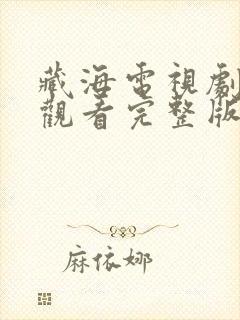 藏海電視劇
觀看完整版
麻依娜